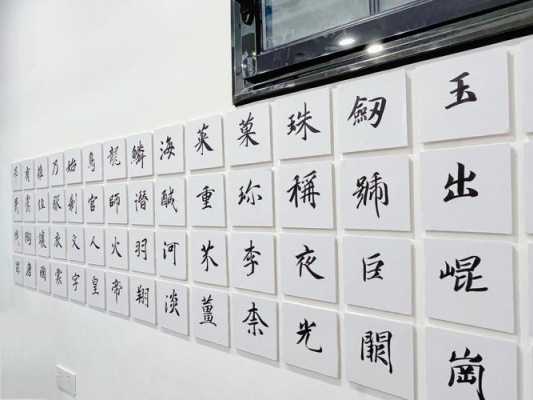 玉出崐崗
劒號巨闕
珠稱夜光
菓珍李柰
菜重芥薑
海醎河淡
鱗潛羽翔
龍師火帝
鳥官人皇
始制文字
乃服衣裳
推位讓國
有虞陶唐